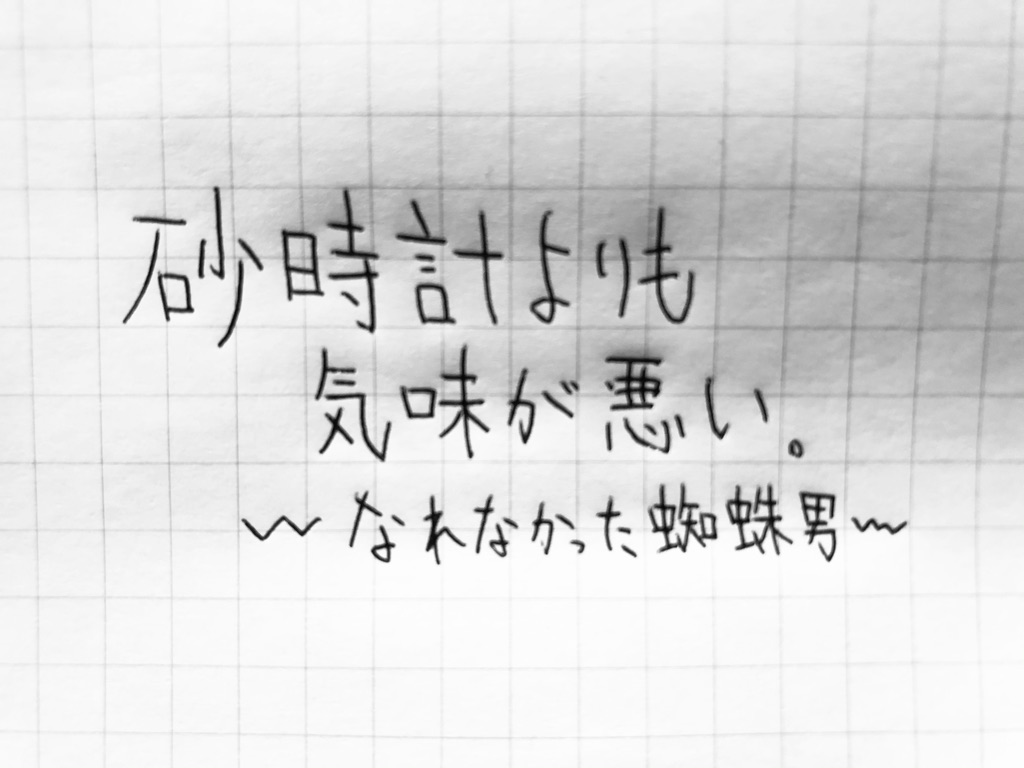 砂時計よりも
気味が悪い。
〜なれなかった蜘蛛男〜